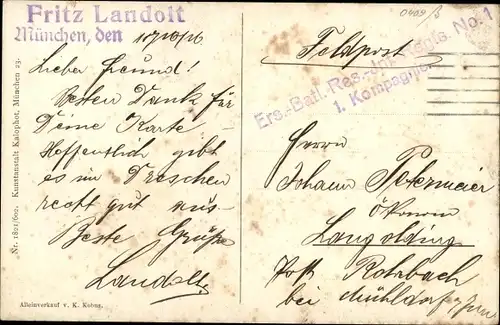 Fritz Landolt
München, den 10/10/16
Lieber Freund!
Besten Dank für
Deine Karte -
Hoffentlich gibt
es im Dreschen
recht gut aus-
Beste Grüße
Landolt
Nr. 1821/602. Kunstanstalt Kalophot, München 23.
Alleinverkauf v. K. Kobus.
Feldpost
Ers.-Batl. Res.-Inf.-Regts. No. 1
1. Kompagnie
Herrn
Johann Petermeier
Ökonom
Langolding
Post Rohrbach
bei Mühldorf